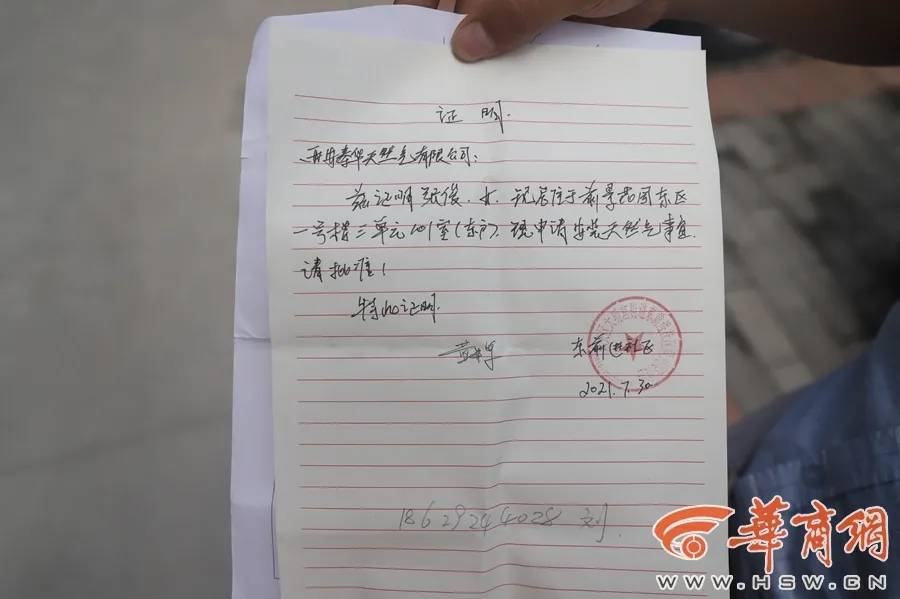 证明.
西安秦华天然气有限公司:
兹证明张俊、女、现居住于前景花园东区
一号楼三单元101室(东户)、现申请安装天然气事宜.
请批准!
特此证明.
东前进社区
2021.7.30
18629244028 刘
華商網
WWW.HSW.CN